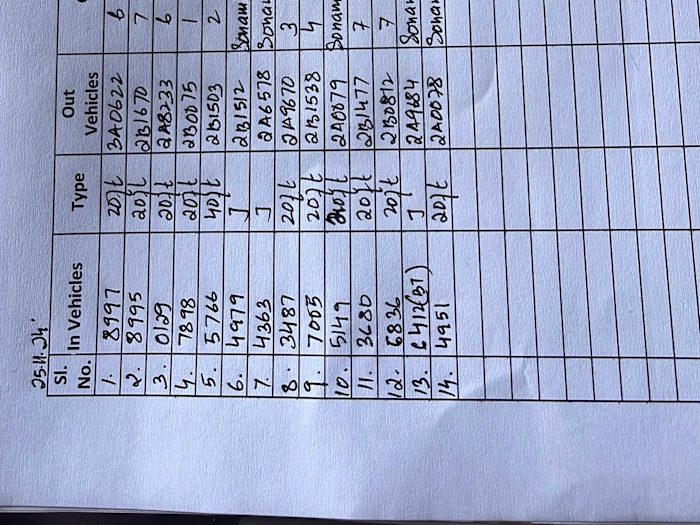 25.11.24'
Sl. No. In Vehicles Type Out Vehicles
1. 8997 20ft 3A0622 6
2. 8995 20ft 2B1670 7
3. 0129 20ft 2A8233 6
4. 7898 20ft 2B0015 1
5. 5766 40ft 2B1503 2
6. 4979 ] 2B1512 Sonam
7. 4363 ] 2A6578 Sonam
8. 3487 20ft 2A9670 3
9. 7005 20ft 2B1538 4
10. 5149 20ft 2A0079 Sonam
11. 3680 20ft 2B1477 7
12. 6836 20ft 2B0812 7
13. 6412(BT) ] 2A9684 Sonam
14. 4951 20ft 2A0078 Sonam